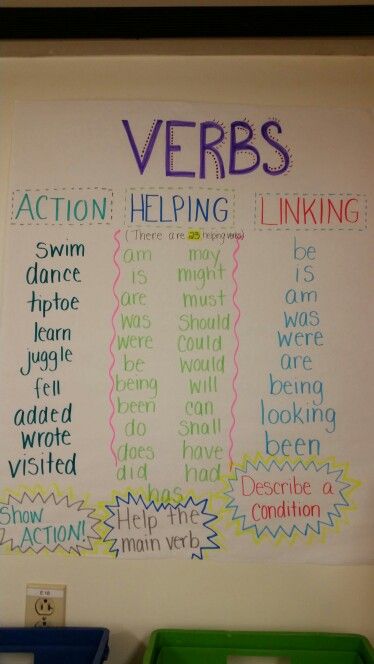 VERBS
ACTION
swim
dance
tiptoe
learn
juggle
fell
added
wrote
visited
Show
ACTION!
HELPING
(There are 23 helping verbs)
am may
is might
are must
was Should
were could
be would
being will
been can
do shall
does have
did had
has
Help the
main verb
LINKING
be
is
am
was
were
are
being
looking
been
Describe a
condition